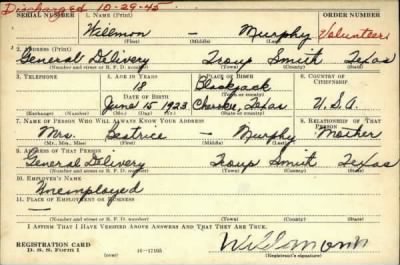 Discharged 10-29-45
SERIAL NUMBER 1. NAME (Print) ORDER NUMBER
Willmon - Murphy Volunteer
(First) (Middle) (Last)
2. ADDRESS (Print)
General Delivery Troup Smith Texas
(Number and street or R. F. D. number) (Town) (County) (State)
3. TELEPHONE 4. AGE IN YEARS 5. PLACE OF BIRTH 6. COUNTRY OF CITIZENSHIP
18 Blackjack
DATE OF BIRTH (Town or county)
June 15 1923 Cherokee, Texas U.S.A.
(Exchange) (Number) (Mo.) (Day) (Yr.) (State or country)
7. NAME OF PERSON WHO WILL ALWAYS KNOW YOUR ADDRESS 8. RELATIONSHIP OF THAT PERSON
Mrs. Beatrice - Murphy Mother
(Mr., Mrs., Miss) (First) (Middle) (Last)
9. ADDRESS OF THAT PERSON
General Delivery Troup Smith Texas
(Number and street or R. F. D. number) (Town) (County) (State)
10. EMPLOYER'S NAME
Unemployed
11. PLACE OF EMPLOYMENT OR BUSINESS
—
(Number and street or R. F. D. number) (Town) (County) (State)
I AFFIRM THAT I HAVE VERIFIED ABOVE ANSWERS AND THAT THEY ARE TRUE.
REGISTRATION CARD
D. S. S. Form 1 16-17105
(Registrant's signature)